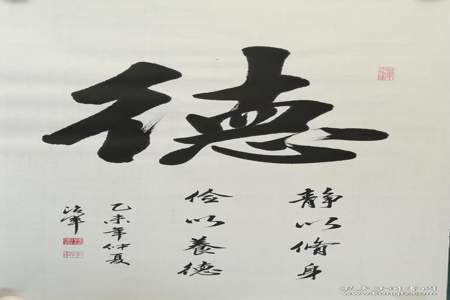 德
静以脩身
俭以養德
乙未年仲夏